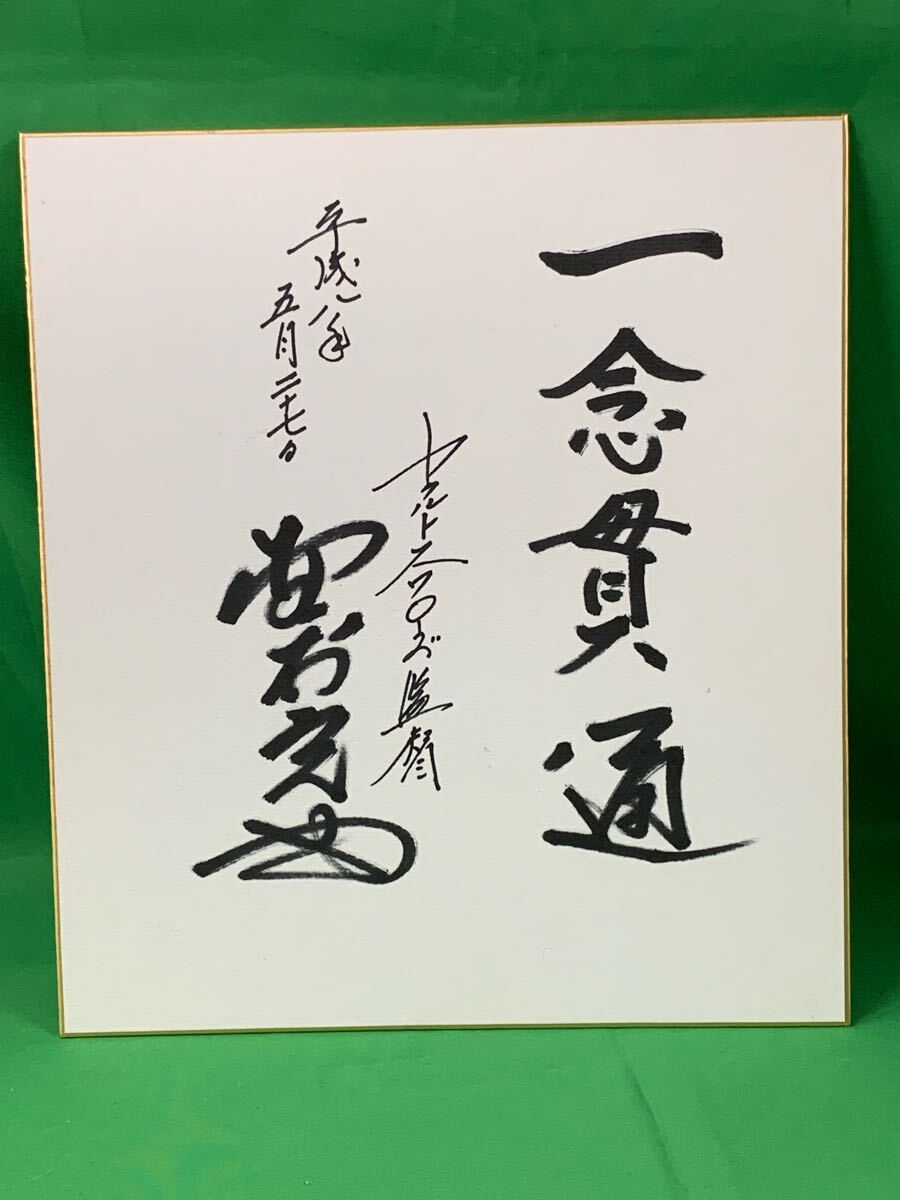 一念貫通
ヤクルトスワローズ監督
平成八年
五月二十七日
野村克也